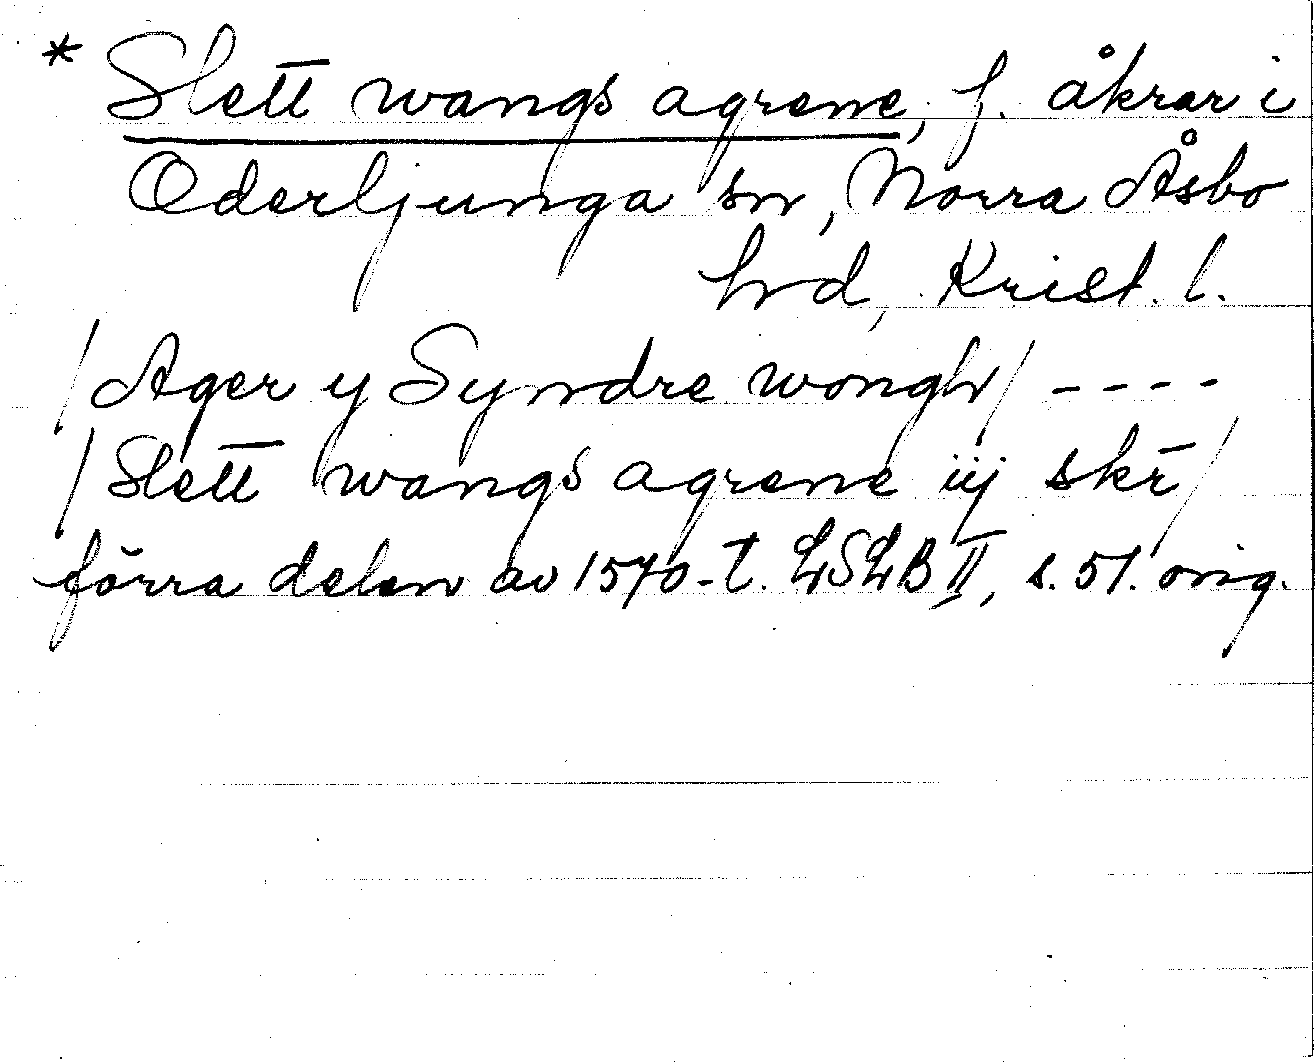 * Slett wangs agrene, f. åkrar i
Oderljunga sn, Norra Åsbo
hrd, Krist. l.
/Ager y Syndre wongh/ ----
/Slett wangs agrene iij skr̄/
förra delen av 1570-t. LSLB II, s. 51. orig.